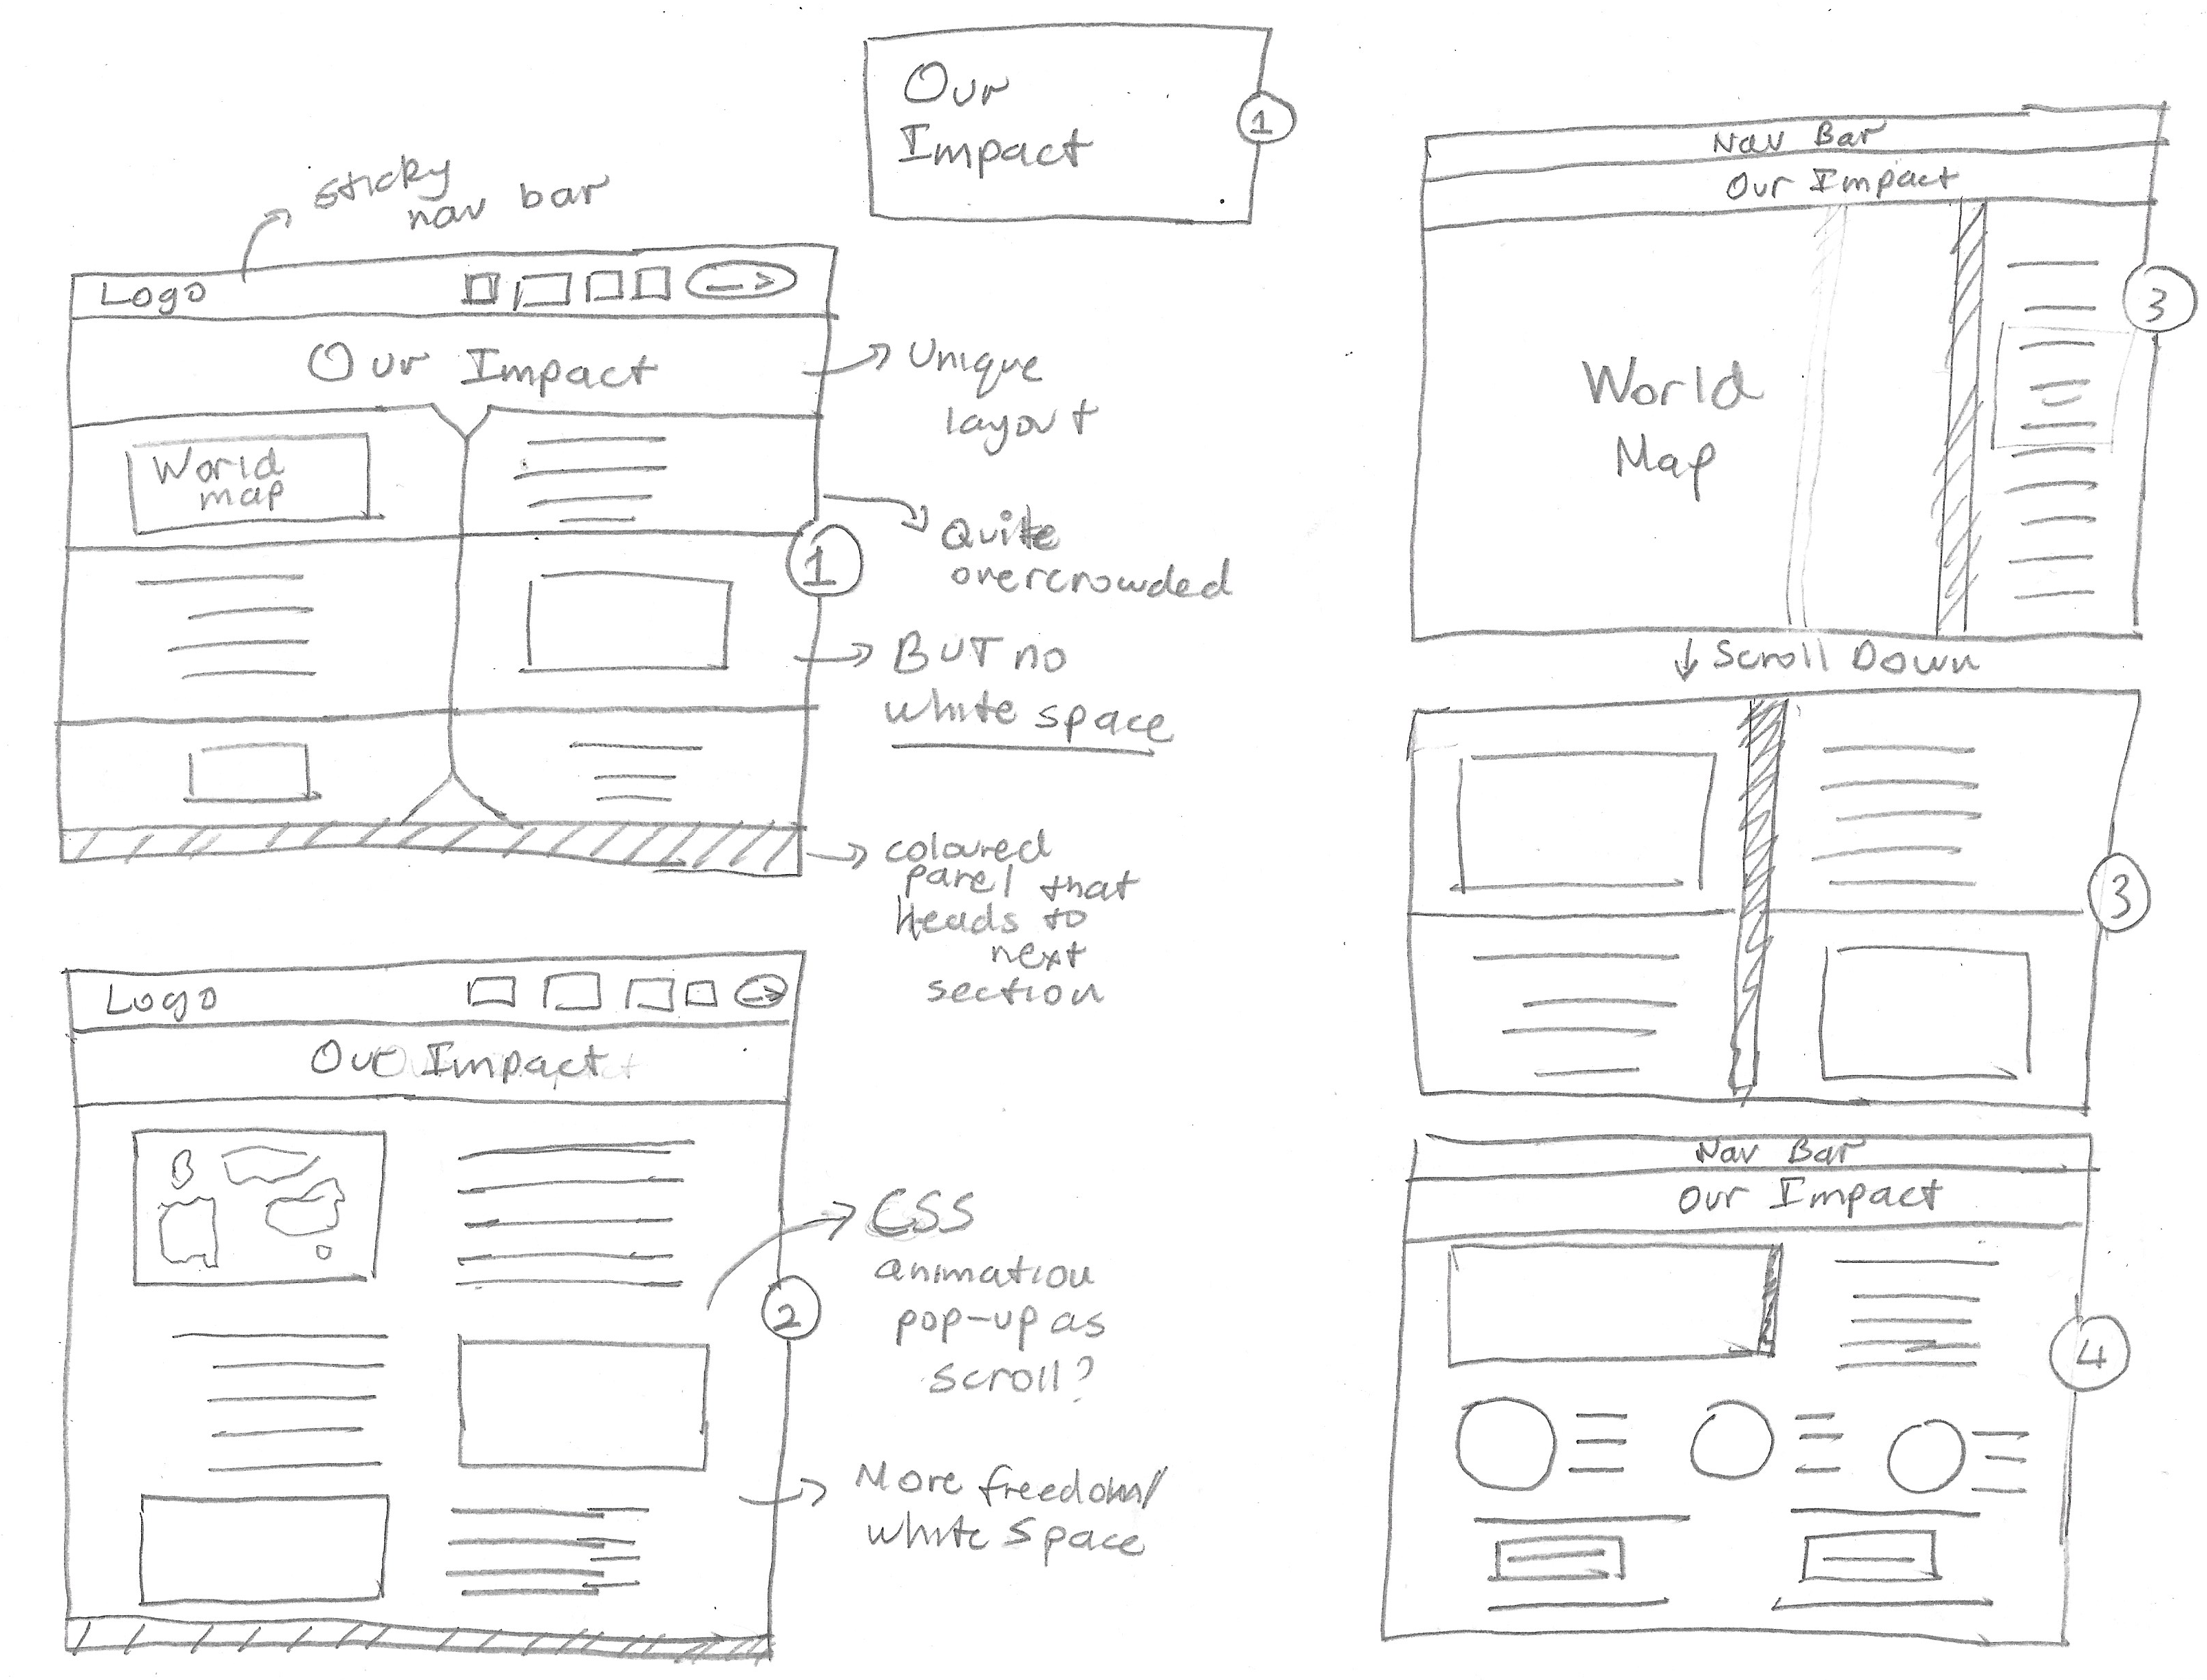 Our
Impact
1
Sticky
nav bar
Logo
Our Impact
World
map
1
Unique
layout
Quite
overcrowded
BUT no
white space
coloured
panel that
heads to
next
section
Logo
Our Impact
2
CSS
animation
pop-up as
scroll?
More freedom/
white space
Nav Bar
Our Impact
World
Map
3
↓ Scroll Down
3
Nav Bar
Our Impact
4